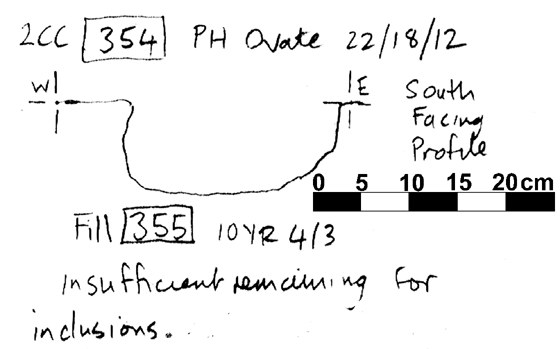 2CC 354 PH Ovate 22/18/12
W E
South
Facing
Profile
0 5 10 15 20cm
Fill 355 10YR 4/3
Insufficient remaining for
inclusions.